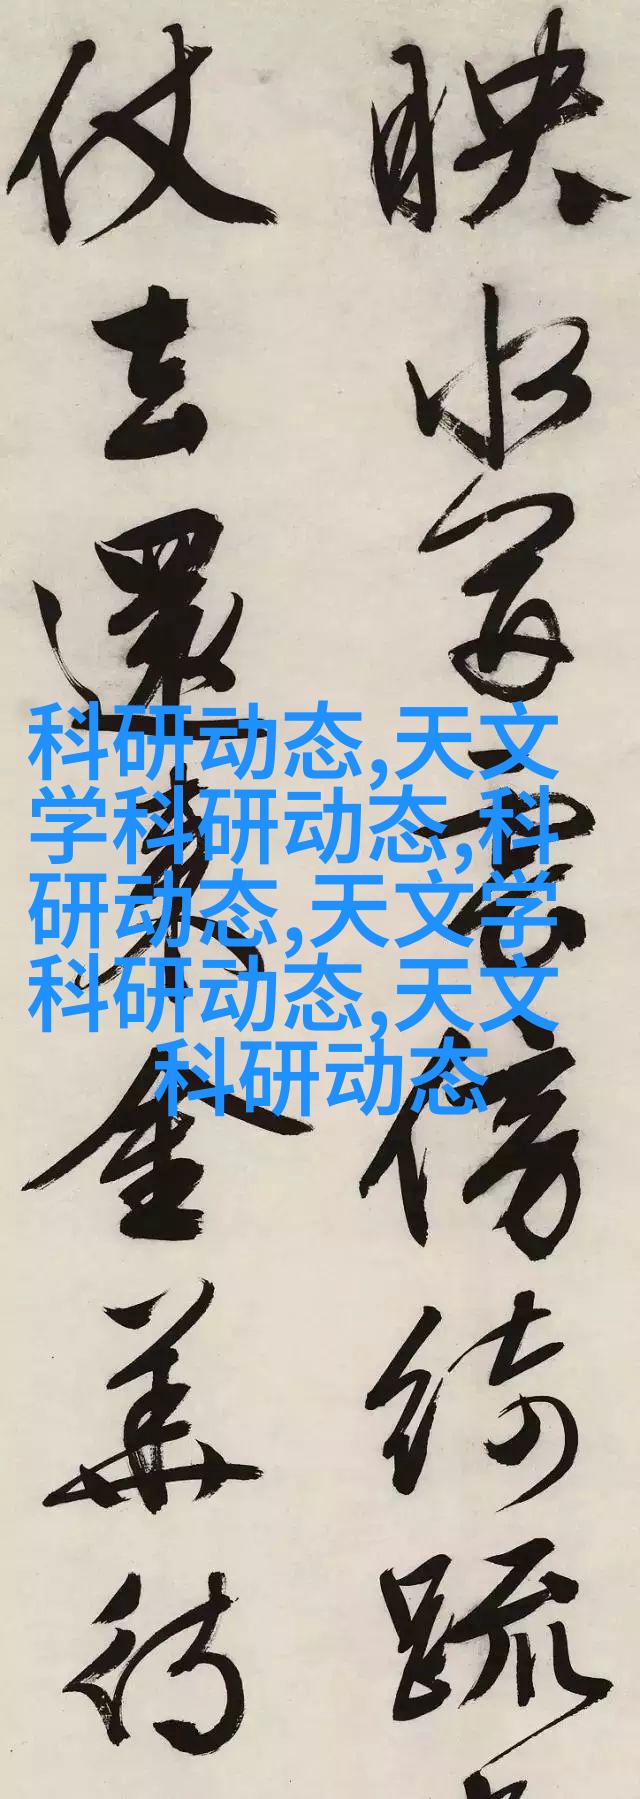 映水雲傍綺疏
仗去還來金華待
科研动态,天文
学科研动态,科
研动态,天文学
科研动态,天文
科研动态